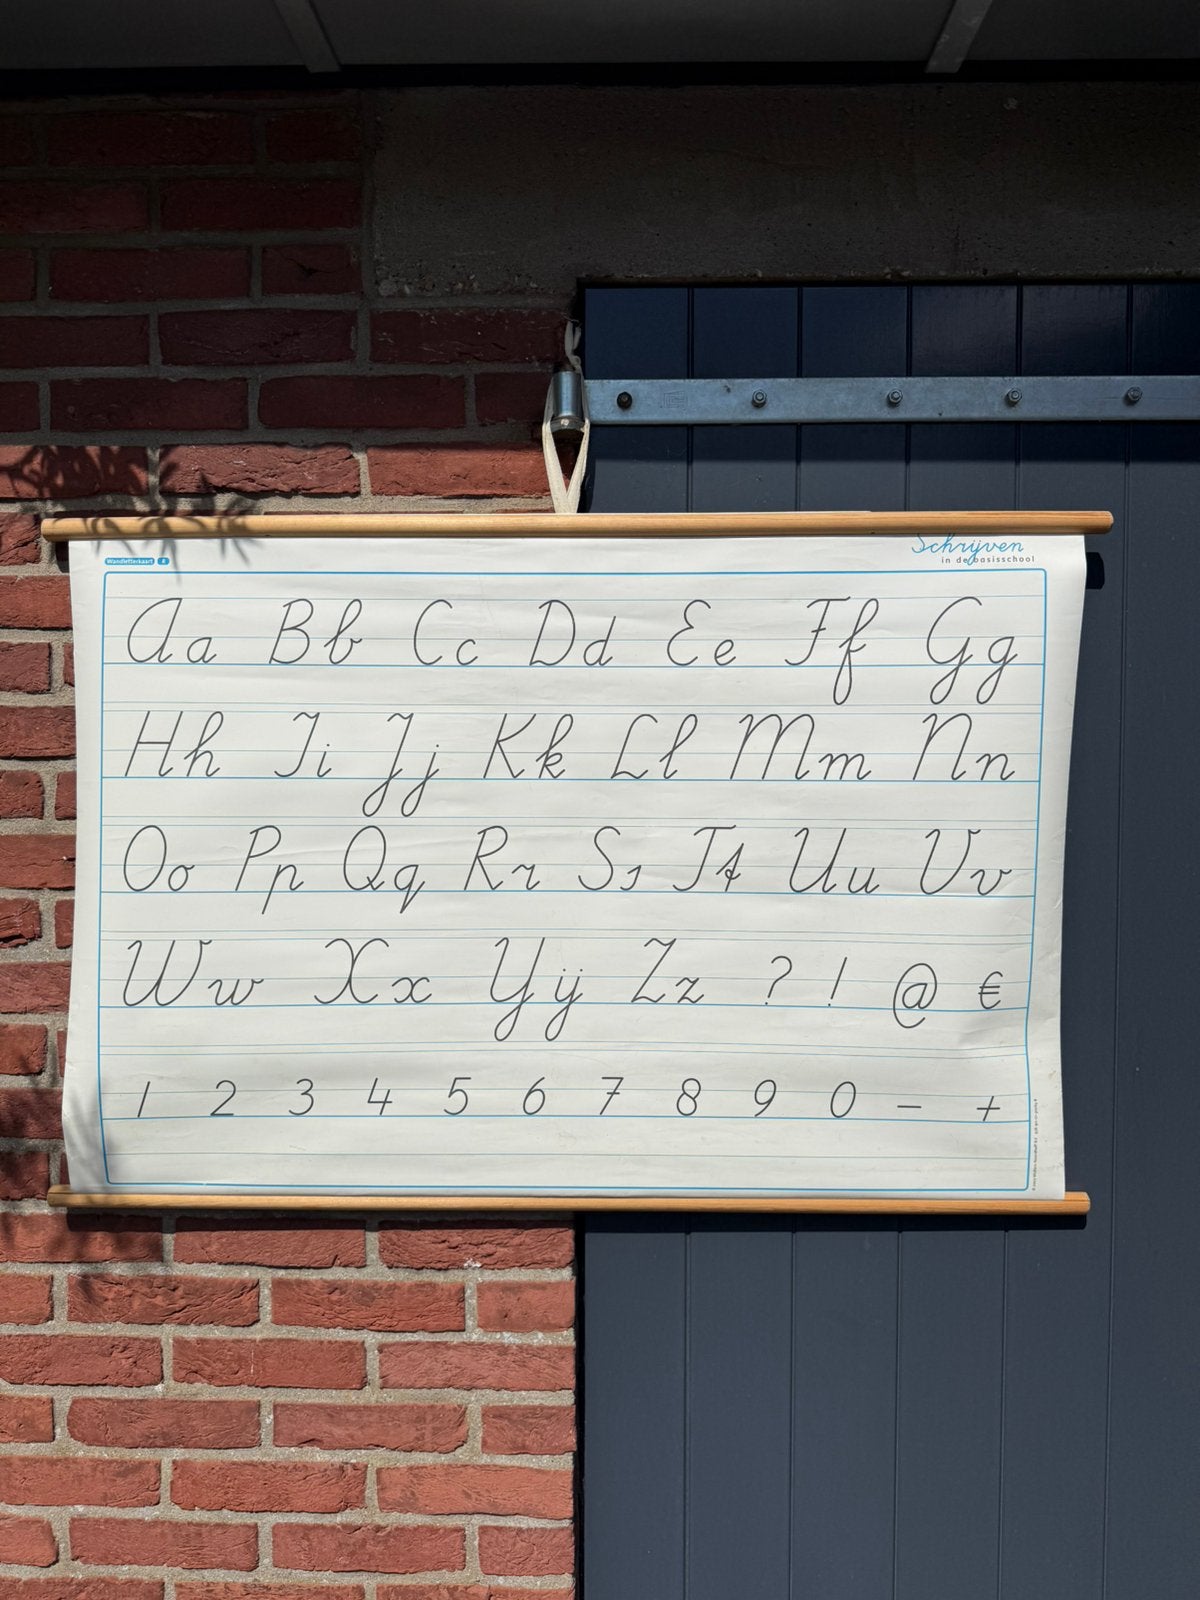 Wandletterkaart
Schrijven
in de basisschool
Aa Bb Cc Dd Ee Ff Gg
Hh Ii Jj Kk Ll Mm Nn
Oo Pp Qq Rr Ss Tt Uu Vv
Ww Xx Yy ij Zz ? ! @ €
1 2 3 4 5 6 7 8 9 0 - +